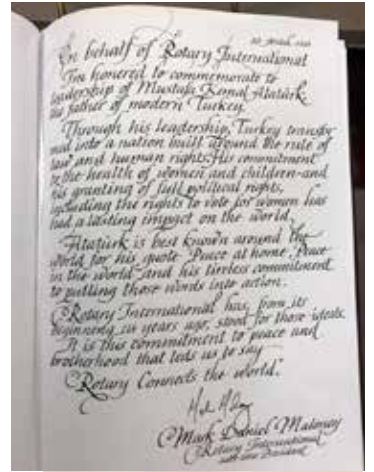 On behalf of Rotary International
I'm honored to commemorate to
leadership of Mustafa Kemal Atatürk,
the father of modern Turkey.
Through his leadership, Turkey transfor
med into a nation built around the rule of
law and human rights. His commitment
to the health of women and children-and
his granting of full political rights,
including the rights to vote for women has
had a lasting impact on the world.
Atatürk is best known around the
world for his quote "Peace at home, Peace
in the world" and his tireless commitment
to putting those words into action.
Rotary International has, from its
beginning, years ago, stood for those ideals.
It is this commitment to peace and
brotherhood that leds us to say
"Rotary Connects the world."
Mark Daniel Maloney
Rotary International
President